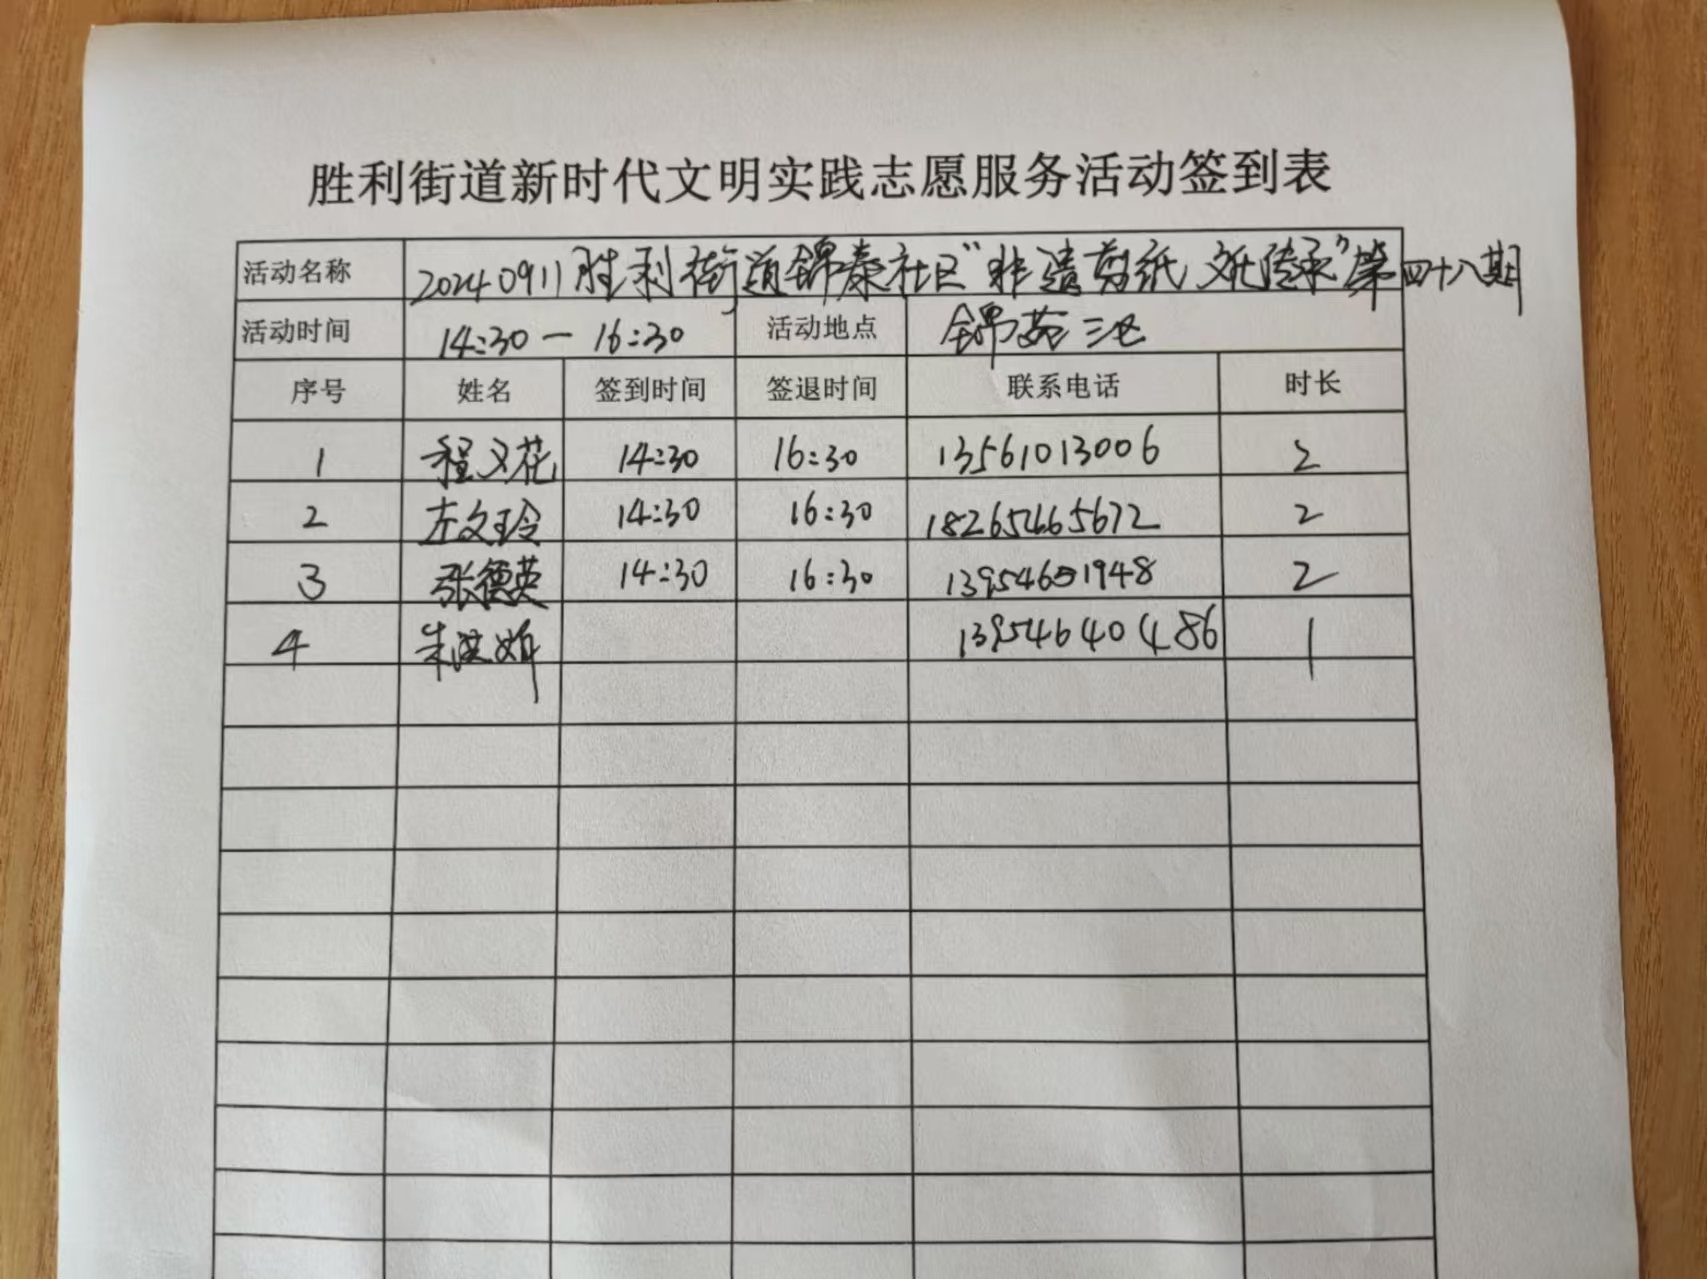 胜利街道新时代文明实践志愿服务活动签到表
活动名称 20240911胜利街道锦泰社区“非遗剪纸 文化传承”第四十八期
活动时间 14:30 — 16:30 活动地点 锦苑三区
序号 姓名 签到时间 签退时间 联系电话 时长
1 程义花 14:30 16:30 13561013006 2
2 左文玲 14:30 16:30 18265465672 2
3 张德英 14:30 16:30 13954651948 2
4 朱洪娟 13954640486 1